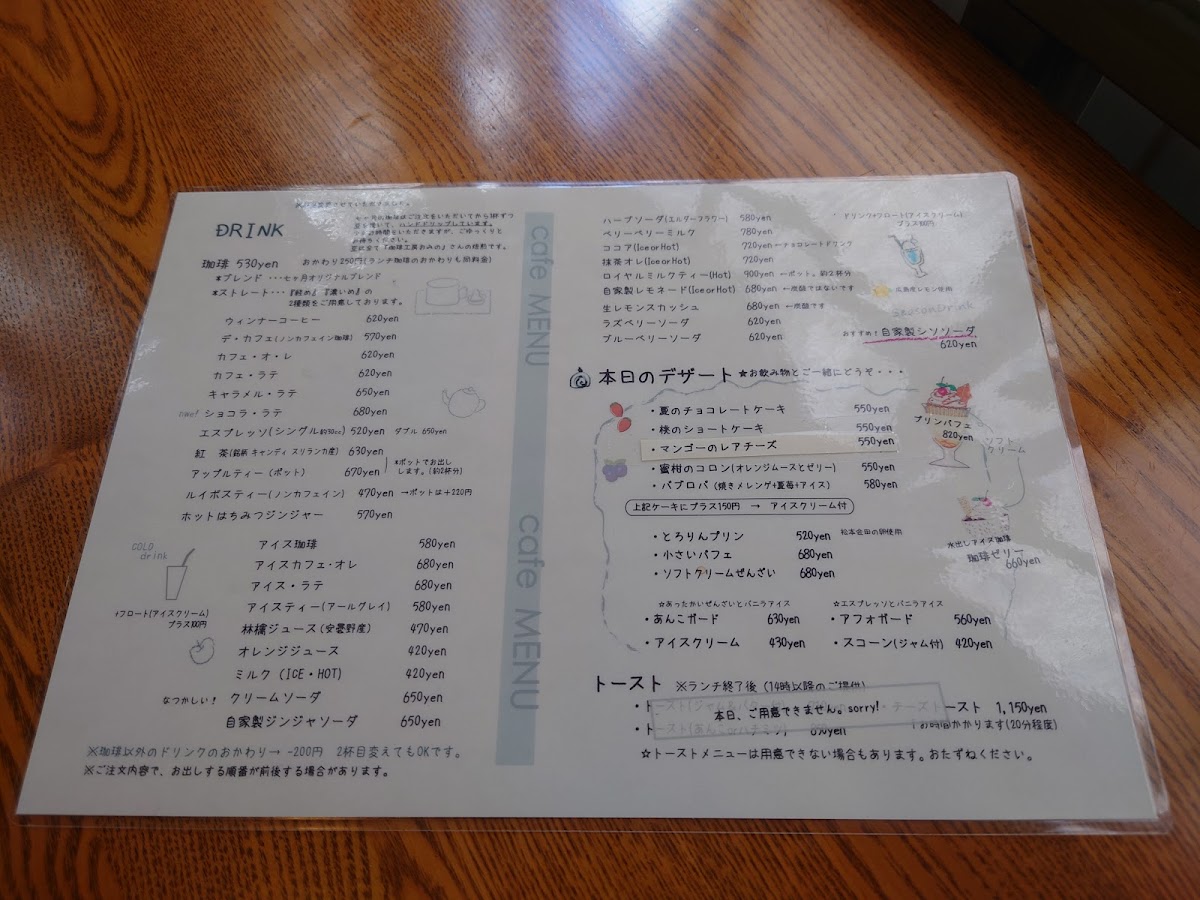 DRINK
七ヶ月の珈琲はご注文をいただいてから1杯ずつ
豆を挽いて、ハンドドリップしています。
少々お時間をいただきますが、ごゆっくりと
お待ちください。
珈琲 530yen おかわり250円(ランチ珈琲のおかわりも同料金)
*ブレンド ・・・七ヶ月オリジナルブレンド
*ストレート・・・『軽め』『濃いめ』の
2種類をご用意しております。
ウィンナーコーヒー 620yen
デ・カフェ(ノンカフェイン珈琲) 570yen
カフェ・オ・レ 620yen
カフェ・ラテ 620yen
キャラメル・ラテ 650yen
new! ショコラ・ラテ 680yen
エスプレッソ(シングル約30cc) 520yen ダブル 650yen
紅 茶(銘柄 キャンディ スリランカ産) 630yen
アップルティー(ポット) 670yen
*ポットでお出し
します。(約2杯分)
ルイボスティー(ノンカフェイン) 470yen →ポットは+220円
ホットはちみつジンジャー 570yen
COLD
drink
アイス珈琲 580yen
アイスカフェ・オレ 680yen
アイス・ラテ 680yen
アイスティー(アールグレイ) 580yen
+フロート(アイスクリーム)
プラス100円
林檎ジュース(安曇野産) 470yen
オレンジジュース 420yen
ミルク (ICE・HOT) 420yen
なつかしい! クリームソーダ 650yen
自家製ジンジャソーダ 650yen
※珈琲以外のドリンクのおかわり→ -200円 2杯目変えてもOKです。
※ご注文内容で、お出しする順番が前後する場合があります。
cafe MENU
cafe MENU
ハーブソーダ(エルダーフラワー) 580yen
ベリーベリーミルク 780yen
ココア(IceorHot) 720yen ←チョコレートドリンク
抹茶オレ(IceorHot) 720yen
ロイヤルミルクティー(Hot) 900yen ←ポット。約2杯分
自家製レモネード(IceorHot) 680yen ←炭酸ではないです
生レモンスカッシュ 680yen ←炭酸です
ラズベリーソーダ 620yen
ブルーベリーソーダ 620yen
ドリンク+フロート(アイスクリーム)
プラス100円
広島産レモン使用
seasonDrink
おすすめ! 自家製シソソーダ
620yen
本日のデザート ☆お飲み物とご一緒にどうぞ・・・
・夏のチョコレートケーキ 550yen
・桃のショートケーキ 550yen
・マンゴーのレアチーズ 550yen
・蜜柑のコロン(オレンジムースとゼリー) 550yen
・パブロバ (焼きメレンゲ+夏苺+アイス) 580yen
上記ケーキにプラス150円 → アイスクリーム付
プリンパフェ
820yen
ソフト
クリーム
・とろりんプリン 520yen 松本会田の卵使用
・小さいパフェ 680yen
・ソフトクリームぜんざい 680yen
水出しアイス珈琲
珈琲ゼリー
660yen
☆あったかいぜんざいとバニラアイス
・あんこガード 630yen
☆エスプレッソとバニラアイス
・アフォガード 560yen
・アイスクリーム 430yen
・スコーン(ジャム付) 420yen
トースト ※ランチ終了後 (14時以降のご提供)
・チーズトースト 1,150yen
本日、ご用意できません。sorry!
お時間かかります(20分程度)
☆トーストメニューは用意できない場合もあります。おたずねください。